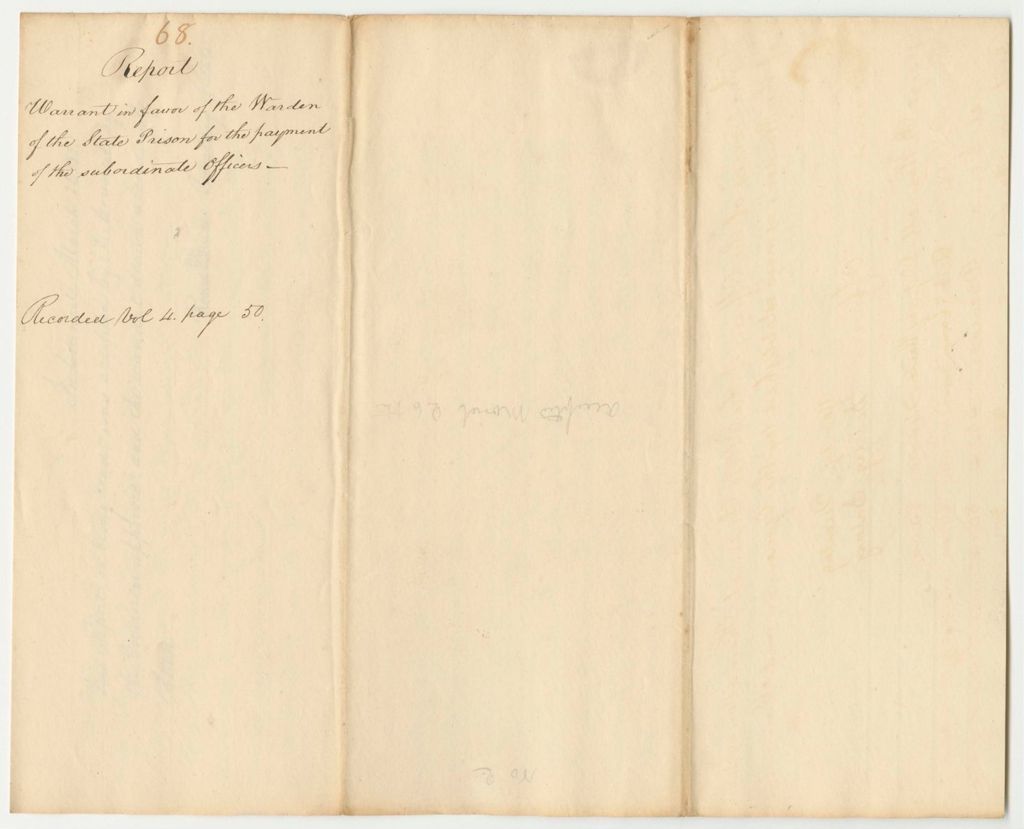 68.
Report
Warrant in favor of the Warden
of the State Prison for the payment
of the subordinate Officers—
Recorded Vol 4. page 50.
No 2